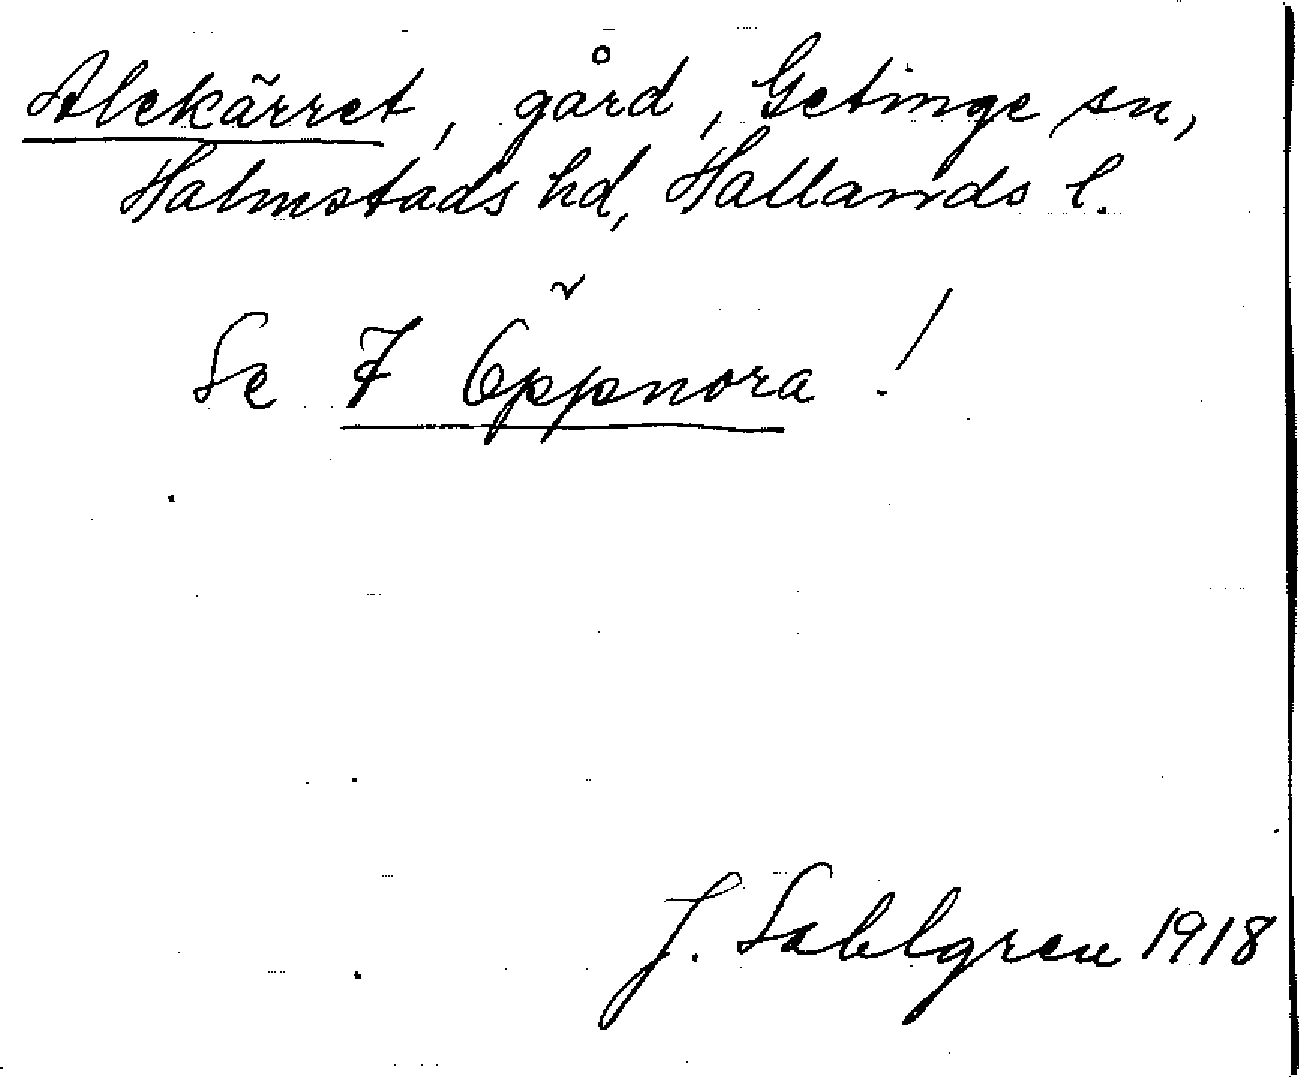 Alekärret, gård, Getinge sn,
Halmstads hd, Hallands l.
Se 7 Öppnora!
J. Sahlgren 1918